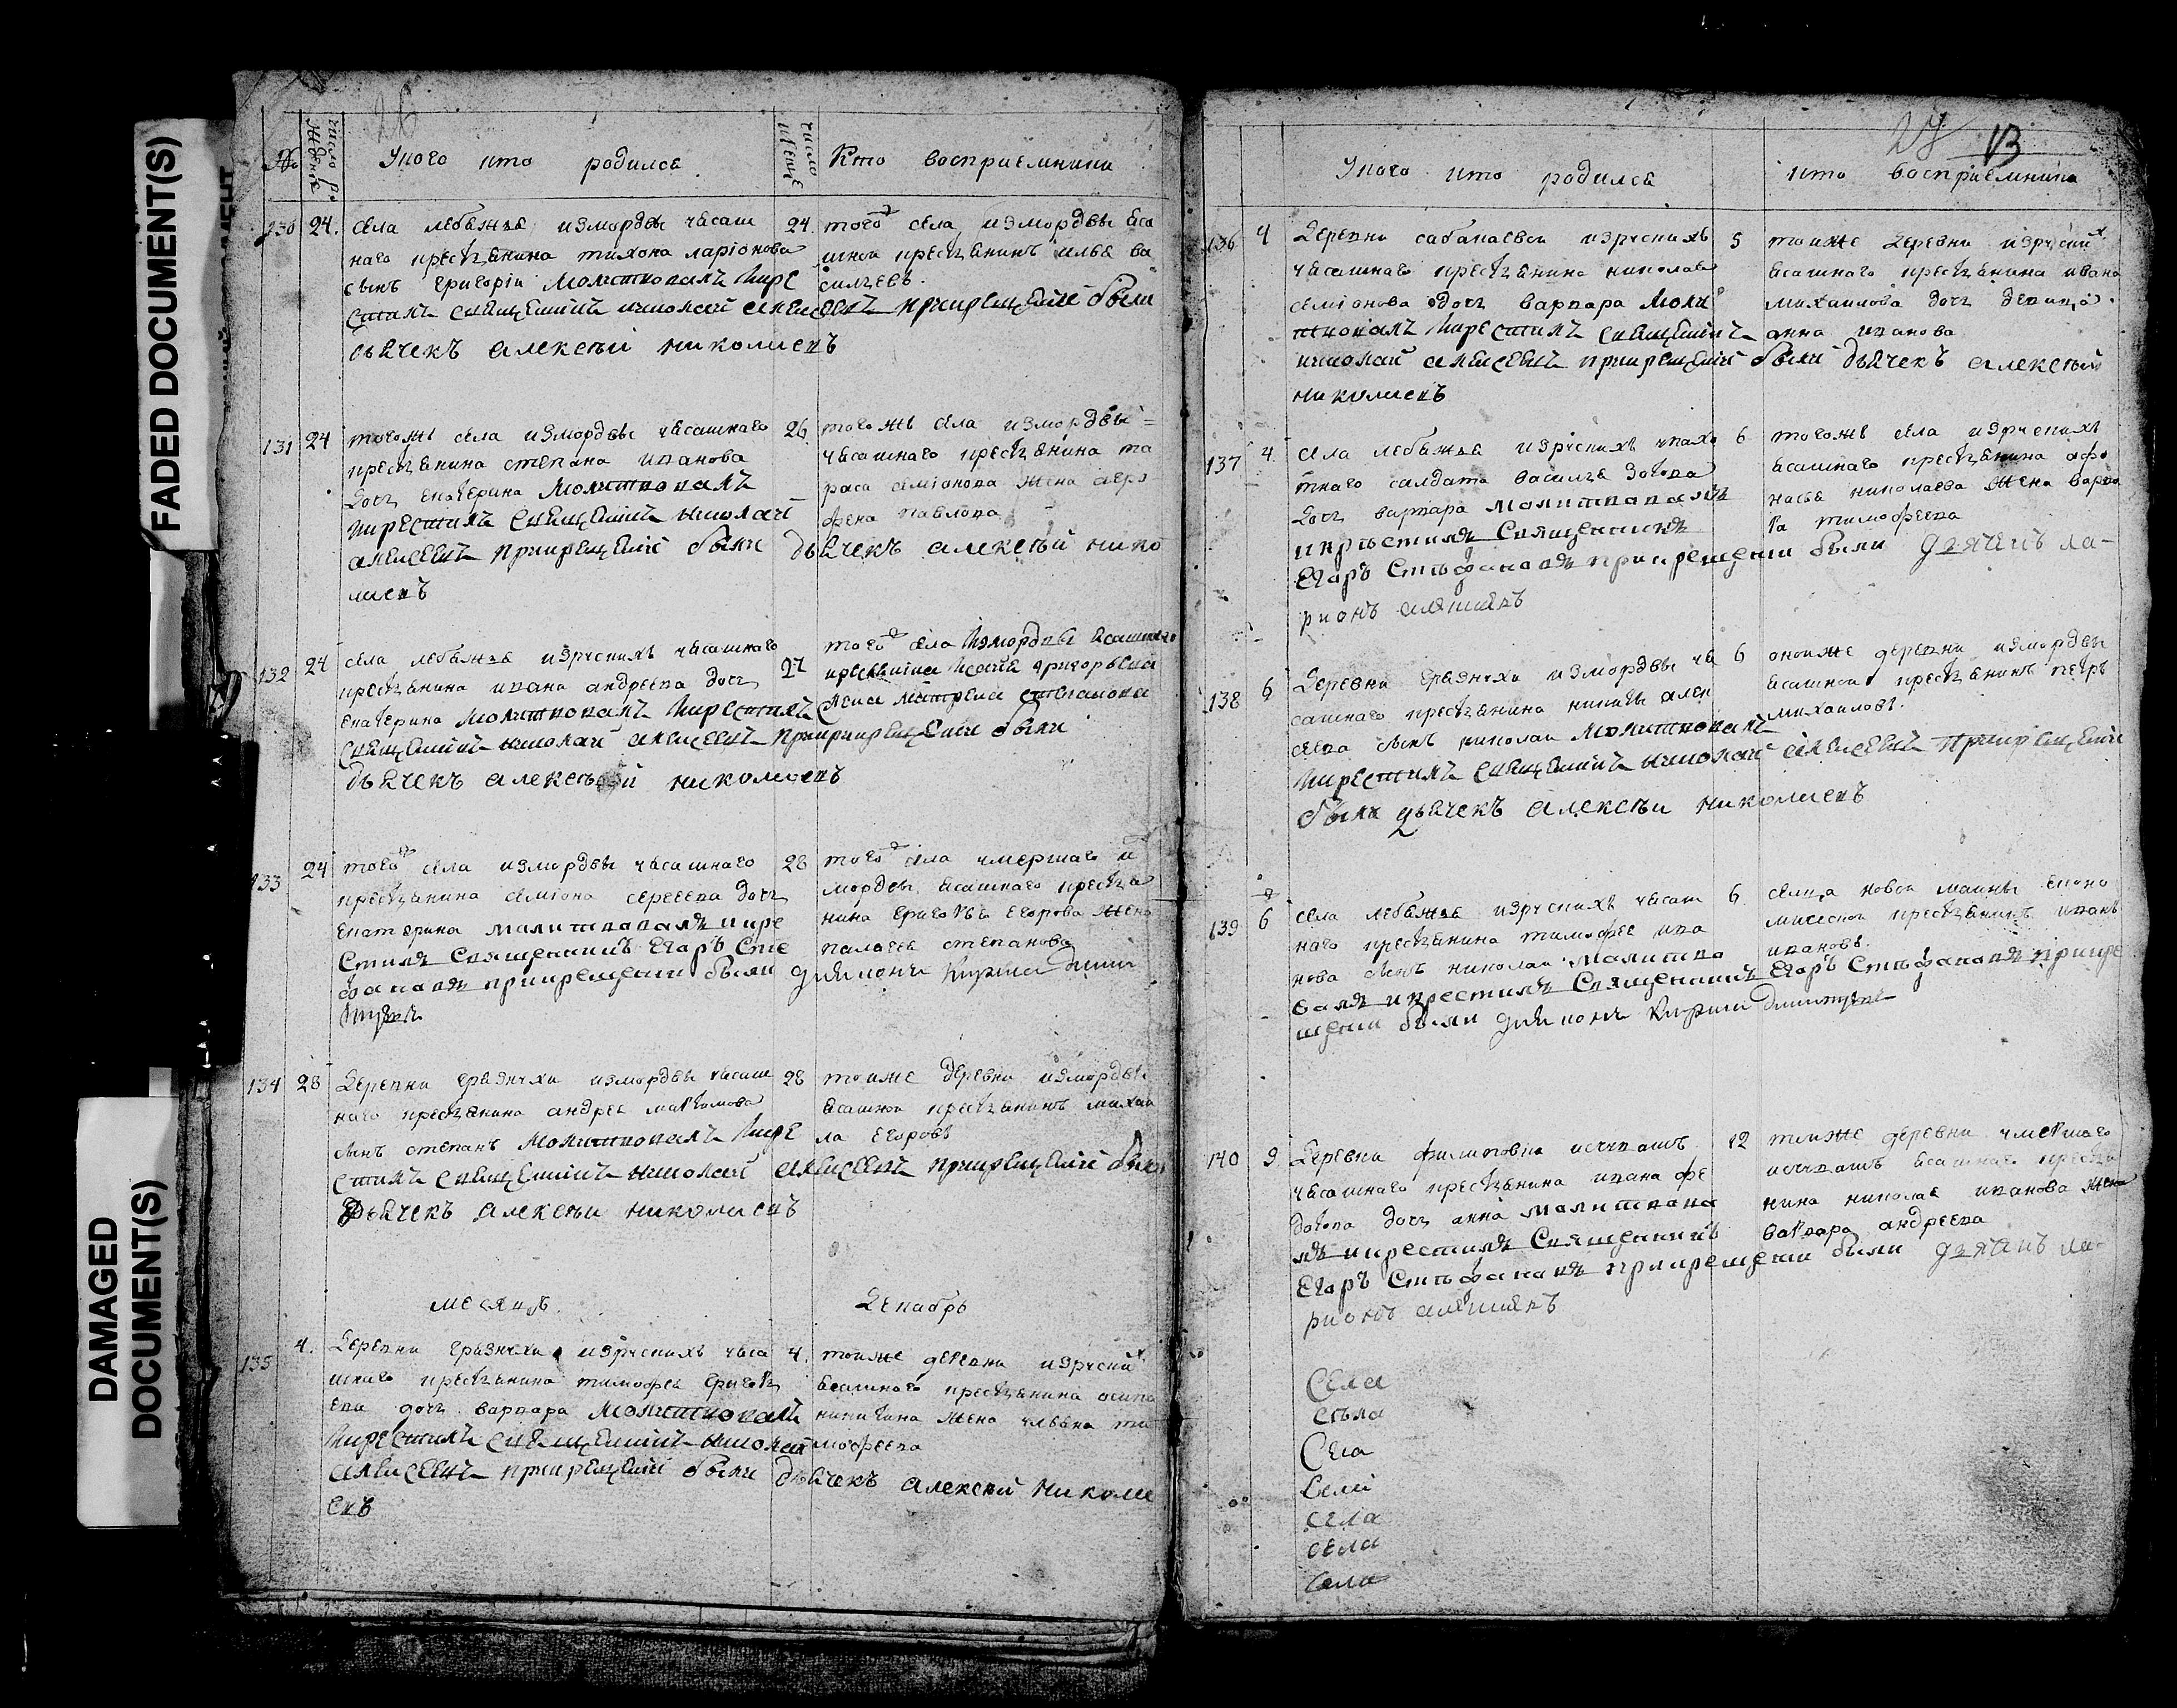 FADED DOCUMENT(S)
DAMAGED
DOCUMENT(S)
26
№
число р.
У ково кто родилса
число
Кто восприемники
130 24. села лебяжья измордвы ясаш
наго крестьянина тихона ларіонова
сынъ григоріи молитвовалъ икре
стилъ священникъ николай алексеевъ прикрещеніи были
дьячекъ алексѣи николаевъ
24. того села измордвы яса
шнои крестьянинъ илья ва
сильевъ.
131 24 тогожъ села измордвы ясашнаго
крестьянина степана иванова
дочь екатерина молитвовалъ
икрестилъ священникъ николай
алексеевъ прикрещеніи были дьячекъ алексѣй нико
лаевъ
26. тогожъ села измордвы
ясашнаго крестьянина та
раса семіонова жена агро
фена павлова
132 24 села лебяжья изрускихъ ясашнаго
крестьянина ивана андреева дочь
екатерина молитвовалъ икрестилъ
священникъ николай алексеевъ были
дьячекъ алексѣй николаевъ
27 того села измордвы ясашнаго
крестьянина григорьева
жена матрена степанова
133 24 того села измордвы ясашнаго
крестьянина семіона сергеева дочь
екатерина малитвавалъ икре
стилъ священникъ Егаръ Сте
фановъ прикрещеніи были дияконъ Кирила Дими
28 того села умершаго из
мордвы ясашнаго крестья
нина григорья егорова жена
палагея степанова
134 28 деревни грязнухи измордвы ясаш
наго крестьянина андрея максимова
сынъ степанъ молитвовалъ икре
стилъ священникъ николай алексеевъ прикрещеніи были
дьячекъ алексѣи николаевъ
28 тоиже деревни измордвы
ясашнои крестьянинъ михаи
ла егоровъ
месяцъ декабрь
135 4. деревни грязнухи изрускихъ яса
шнаго крестьянина тимофея григорь
ева дочь варвара молитвовалъ
икрестилъ священникъ николай
алексеевъ прикрещеніи были дьячекъ алексѣй никола
евъ
4. тоиже деревни изруски
ясашнаго крестьянина осипа
никитина жена ульяна ти
мофеева
27
13
У ково кто родилса
кто восприемники
136 4 деревни сабакаевои изрускихъ
ясашнаго крестьянина николая
семіонова дочь варвара моли
твовалъ икрестилъ священникъ
николай алексеевъ прикрещеніи были дьячекъ алексѣй
николаевъ
5 тоиже деревни изруски
ясашнаго крестьянина ивана
михаилова дочь девица
анна иванова
137 4 села лебяжья изрускихъ
солдата василья
дочь варвара малитвавалъ
икрѣстилъ священникъ
Егаръ Стѣфановъ прикрещеніи были дьячекъ ла-
рионъ
6 тогожъ села изрускихъ
ясашнаго крестьянина афо
насья николаева жена варва
ра тимофеева
138 6 деревни грязнухи измордвы яа
сашнаго крестьянина никиты алек
сеева сынъ николаи молитвовалъ
икрестилъ священникъ николай алексеевъ прикрещеніи
были дьячекъ алексѣи николаевъ
6 оноиже деревни измордвы
ясашнои крестьянинъ петръ
михаиловъ.
139 6 села лебяжья изрускихъ ясаш
наго крестьянина тимофея ива
нова сынъ николаи малитво
валъ икрестилъ священникъ Егаръ Стѣфановъ прикре
щеніи были дияконъ Кирила Димитриевъ
6. селца новои маины економ
ическои крестьянинъ иванъ
ивановъ.
140 9 деревни филиповки исчувашъ
ясашнаго крестьянина ивана фе
дотова дочь анна малитвава
лъ икрестилъ священникъ
Егаръ Стѣфановъ прикрещеніи были дьячекъ ла-
рионъ
12 тоиже деревни умершаго
исчувашъ ясашнаго крестья
нина николая иванова жена
варвара андреева
Села
сѣла
Села
Села
села
села
села